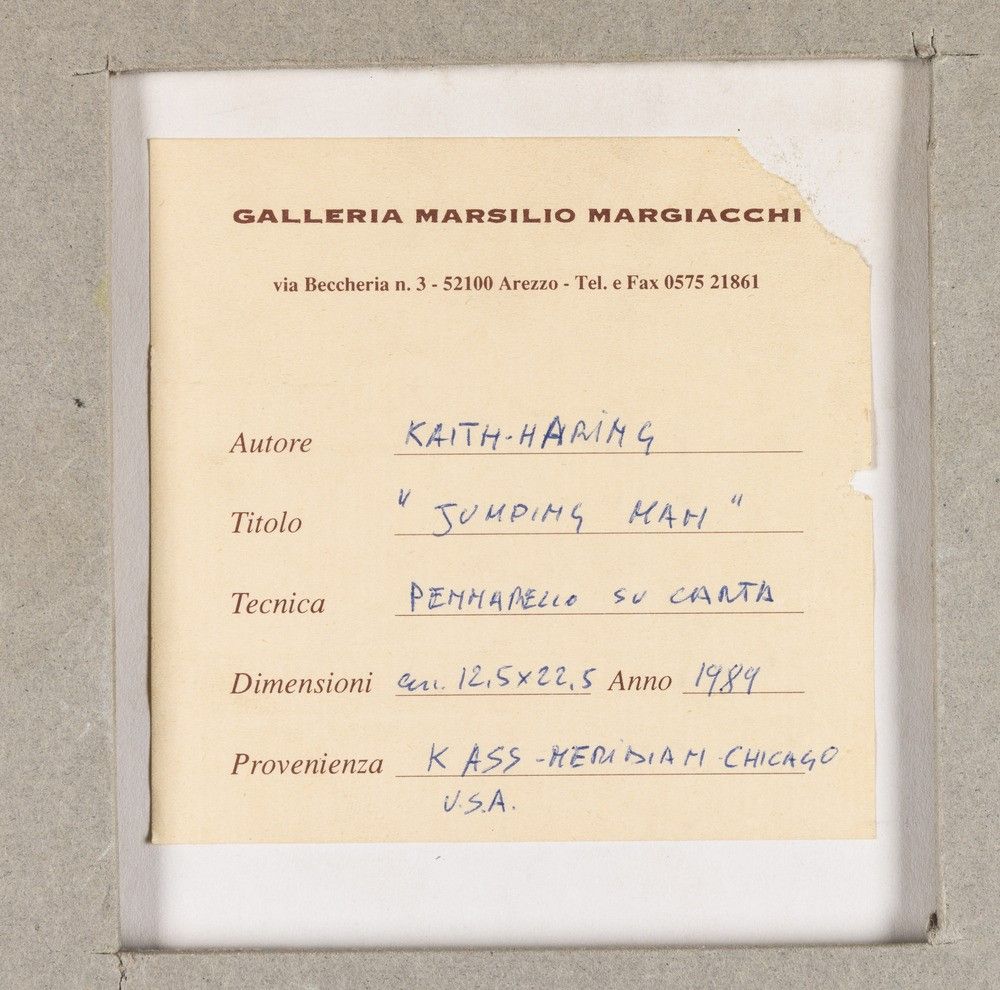 GALLERIA MARSILIO MARGIACCHI
via Beccheria n. 3 - 52100 Arezzo - Tel. e Fax 0575 21861
Autore KAITH-HARING
Titolo "JUMPING MAN"
Tecnica PENNARELLO SU CARTA
Dimensioni cm. 12,5x22,5 Anno 1989
Provenienza KASS-MERIDIAN-CHICAGO
U.S.A.